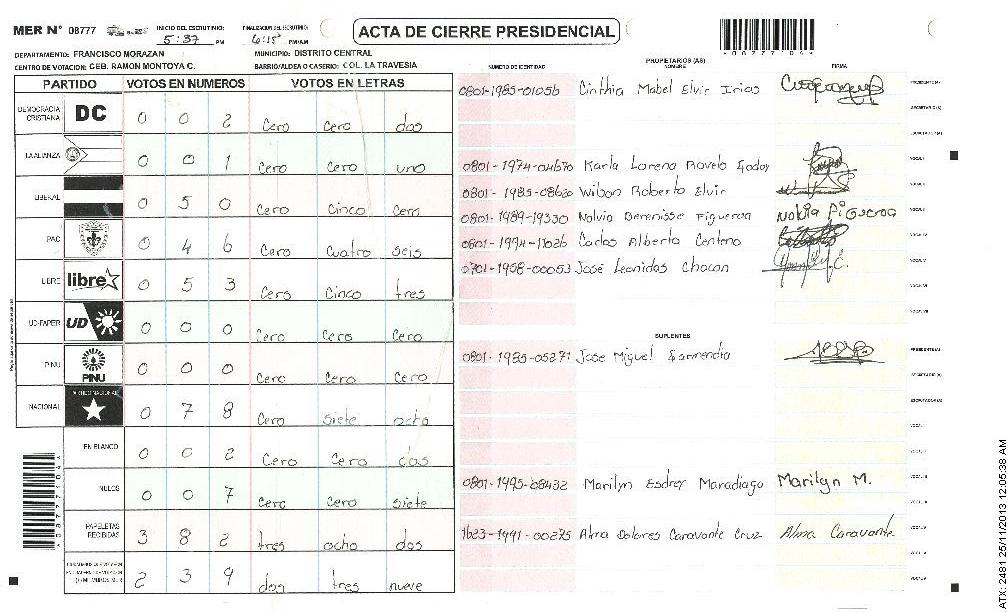 MER N° 08777 INICIO DEL ESCRUTINIO: 5:37 PM FINALIZACION DEL ESCRUTINIO: 6:15 PM/AM
ACTA DE CIERRE PRESIDENCIAL
*08777104*
DEPARTAMENTO: FRANCISCO MORAZAN MUNICIPIO: DISTRITO CENTRAL
CENTRO DE VOTACION: CEB. RAMON MONTOYA C. BARRIO/ALDEA O CASERIO: COL. LA TRAVESIA
PARTIDO VOTOS EN NUMEROS VOTOS EN LETRAS
DEMOCRACIA CRISTIANA DC 0 0 2 Cero Cero dos
LA ALIANZA 0 0 1 Cero Cero uno
LIBERAL 0 5 0 Cero Cinco Cero
PAC 0 4 6 Cero Cuatro seis
LIBRE libre 0 5 3 Cero Cinco tres
UD-FAPER UD 0 0 0 Cero Cero Cero
PINU PINU 0 0 0 Cero Cero Cero
NACIONAL PARTIDO NACIONAL 0 7 8 Cero siete ocho
EN BLANCO 0 0 2 Cero Cero dos
NULOS 0 0 7 Cero Cero siete
PAPELETAS RECIBIDAS 3 8 2 tres ocho dos
2 3 9 dos tres nueve
*08777104*
PROPIETARIOS (AS)
NUMERO DE IDENTIDAD NOMBRE FIRMA
0801-1985-01056 Cinthia Mabel Elvir Irias PRESIDENTE(A)
SECRETARIO(A)
ESCRUTADOR(A)
0801-1974-04670 Karla Lorena Rovelo Godoy VOCAL I
0801-1985-08620 Wilson Roberto Elvir VOCAL II
0801-1989-19330 Nolvia Berenisse Figueroa Nolvia Figueroa VOCAL III
0801-1974-11026 Carlos Alberto Centeno VOCAL IV
0701-1958-00053 José Leonidas Chacon VOCAL V
VOCAL VI
VOCAL VII
SUPLENTES
0801-1985-05271 Jose Miguel Sarmendia PRESIDENTE(A)
SECRETARIO(A)
ESCRUTADOR(A)
VOCAL I
VOCAL II
0801-1995-08432 Marilyn Esdrey Maradiaga Marilyn M. VOCAL III
1623-1991-00275 Alma Dolores Caravante Cruz Alma Caravante
ATX: 2481 25/11/2013 12:05:38 AM